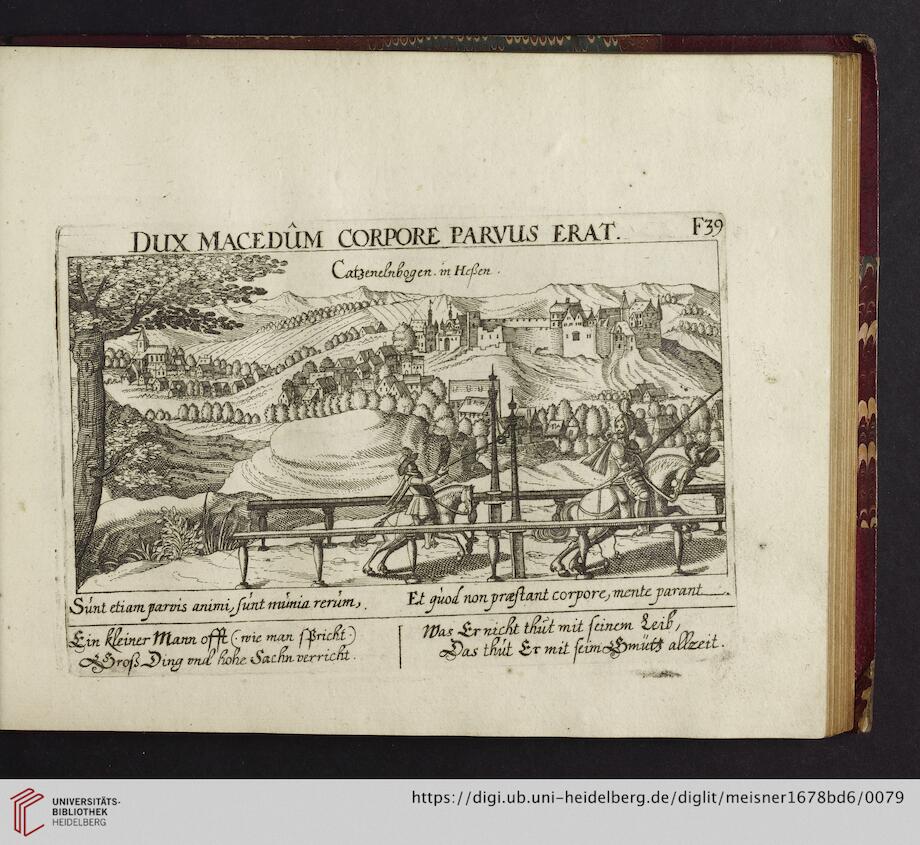 DUX MACEDÛM CORPORE PARVUS ERAT.
F39
Catzenelnbogen. in Heßen.
Sunt etiam parvis animi, sunt mūnia rerūm,.
Et quod non præstant corpore, mente parant
Ein kleiner Mann offt (: wie man spricht :)
Groß Ding vnd hohe Sachn verricht.
Was Er nicht thut mit seinem Leib,
Das thut Er mit seim Gmütt allzeit.
UNIVERSITÄTS-
BIBLIOTHEK
HEIDELBERG
https://digi.ub.uni-heidelberg.de/diglit/meisner1678bd6/0079